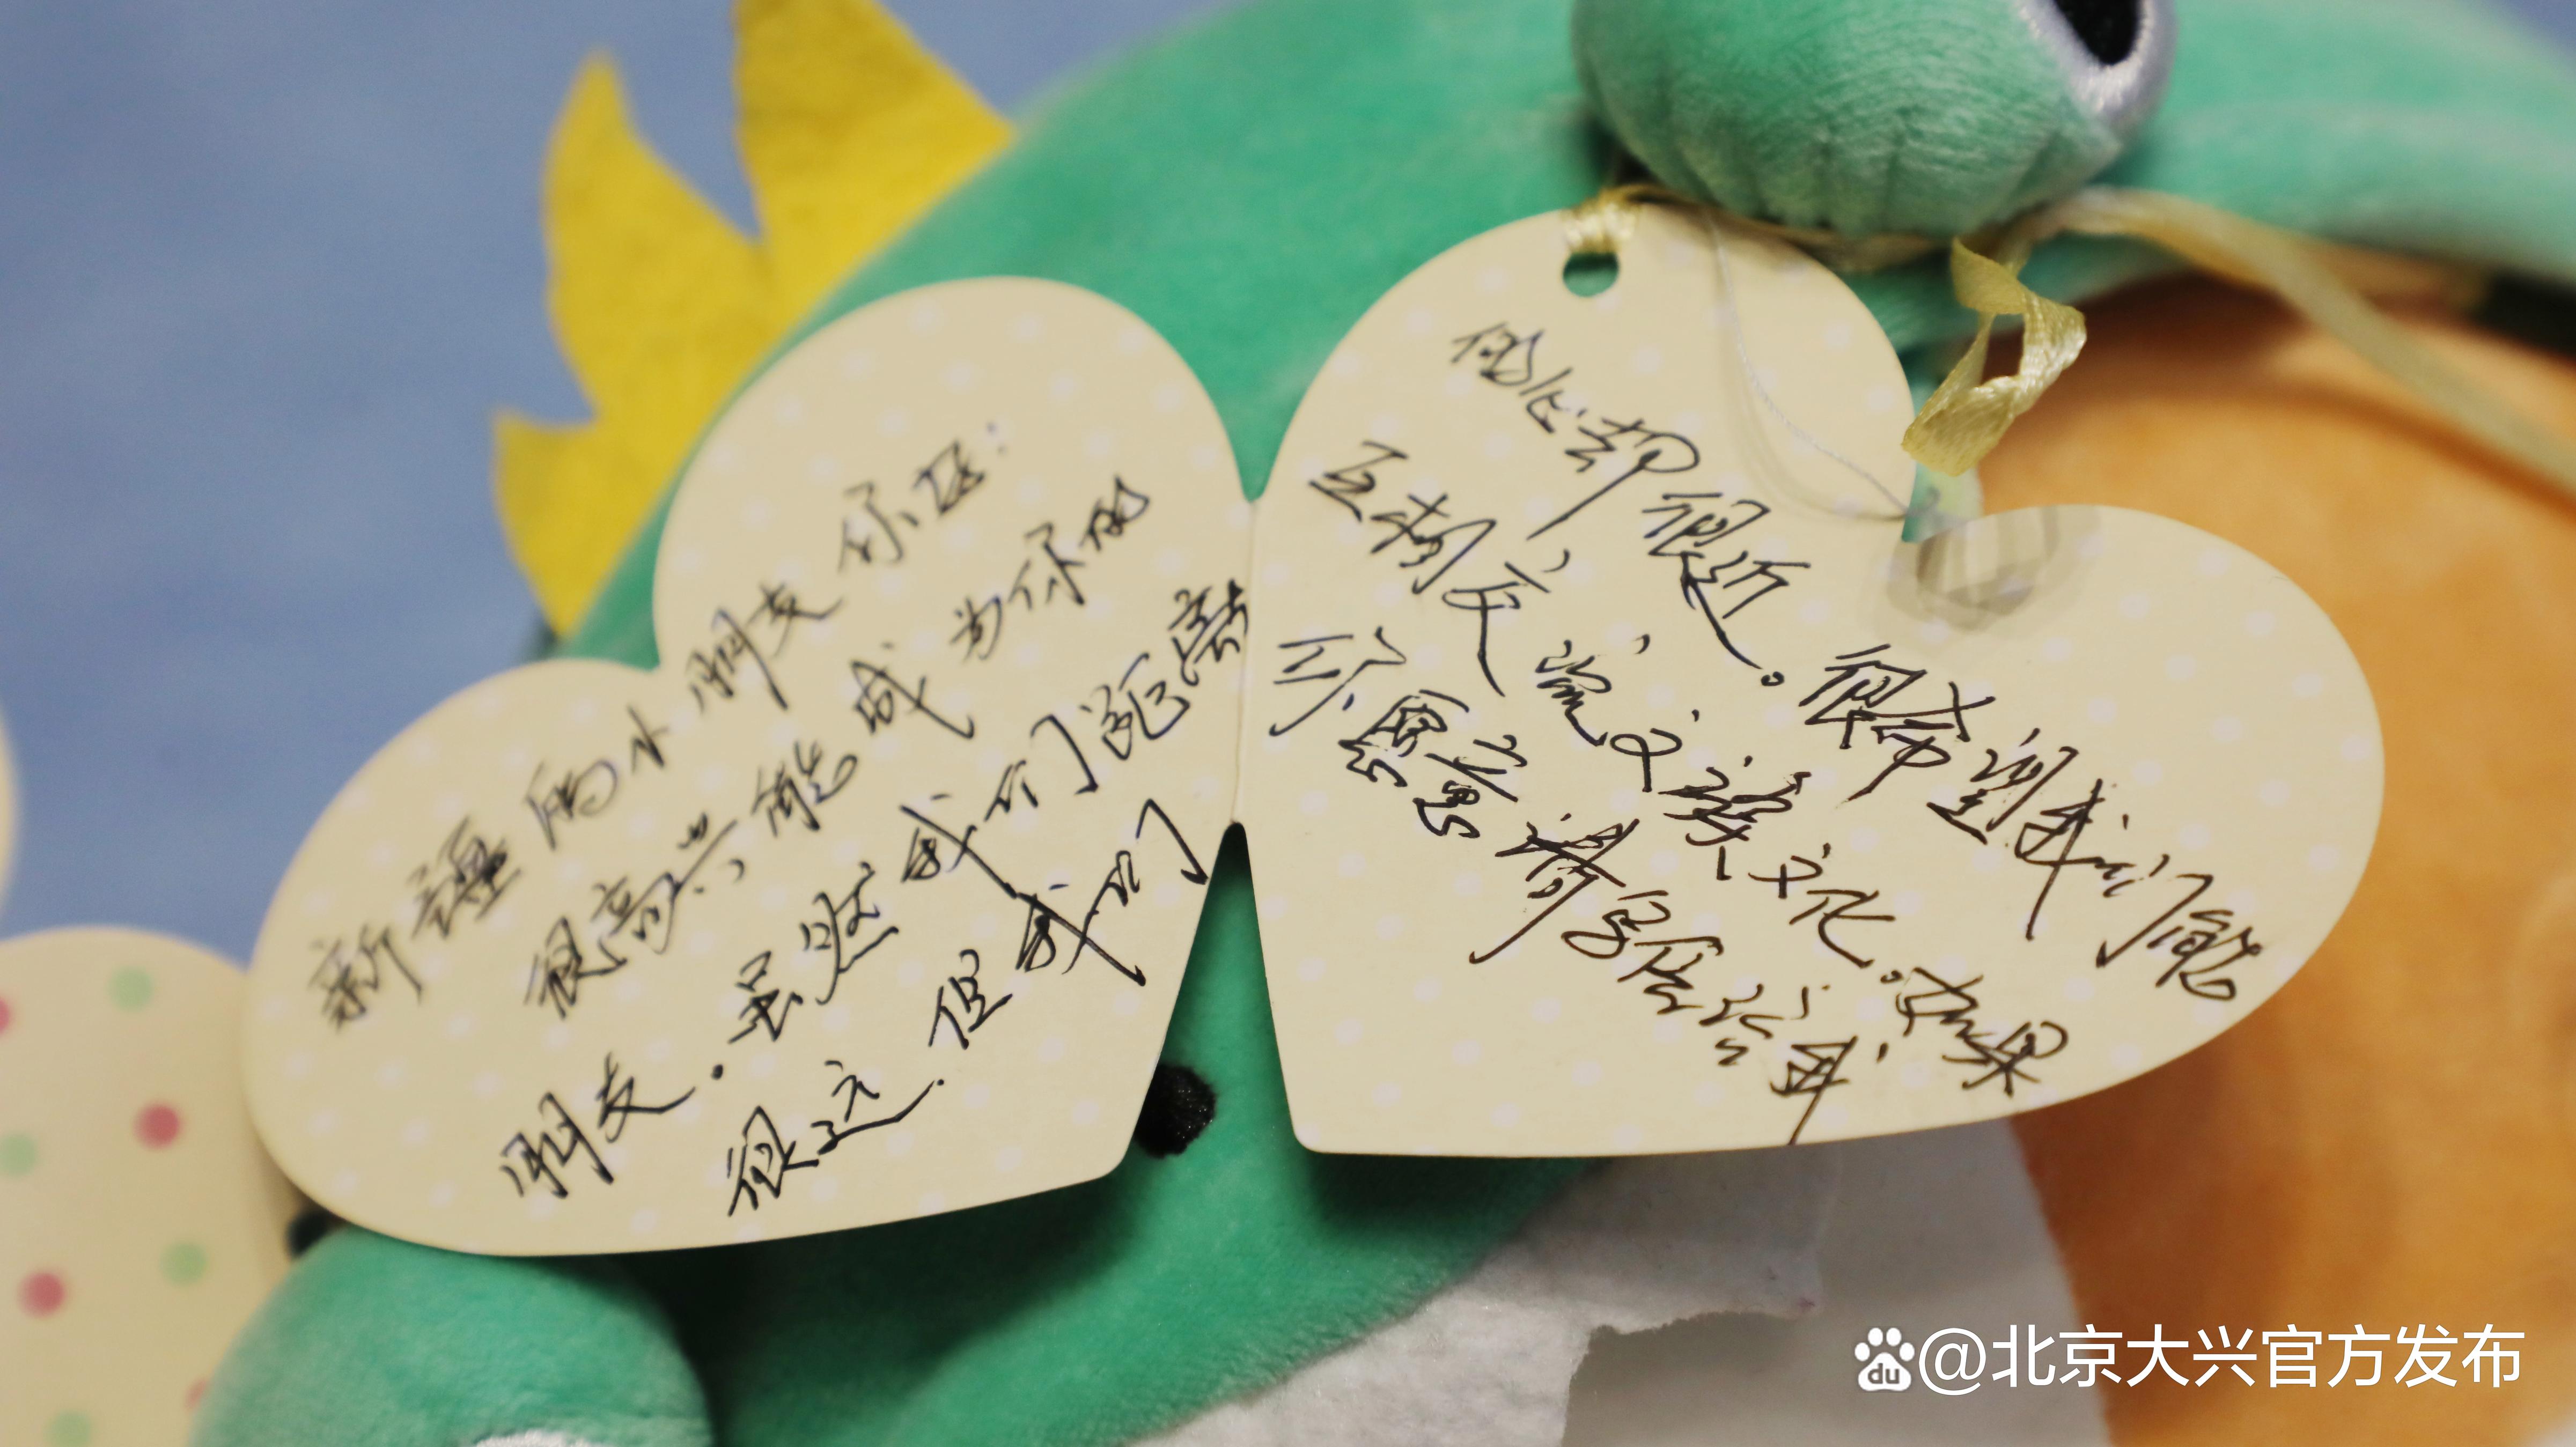 新疆的小朋友你好:
很高兴能成为你的
朋友。虽然我们距离
很远.但我们
的心却很近。很希望我们能
互相交流文族文化。如果
你愿意请写信给
@北京大兴官方发布
du